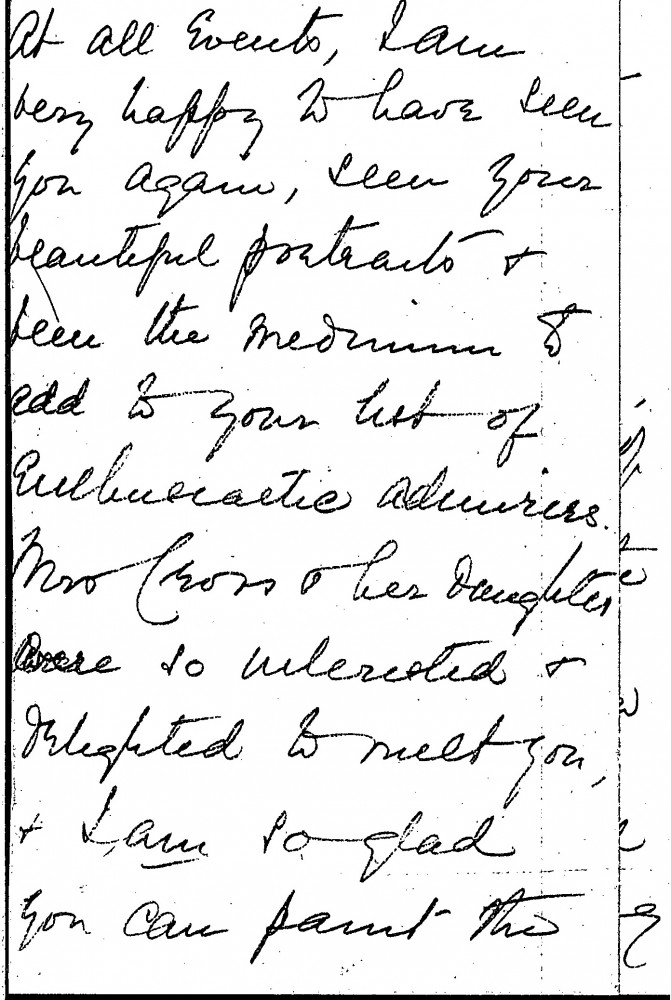 At all Events, I am
very happy to have seen
you again, seen your
beautiful portraits &
been the medium to
add to your list of
Enthusiastic admirers.
Mrs Cross & her daughter
were so interested &
delighted to meet you,
& I am so glad
you can paint the